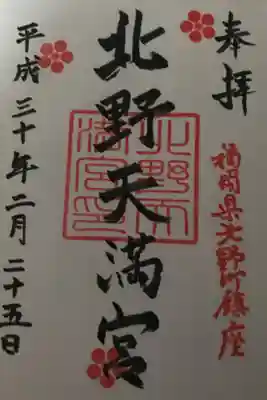 奉拝
福岡県北野町鎮座
北野天満宮
北野天満宮印
平成三十年二月二十五日